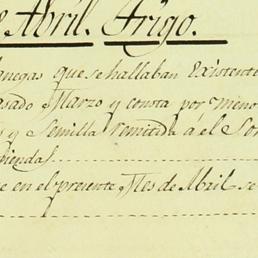 e Abril. Trigo.
anegas que se hallaban Existente
asado Marzo y consta por meno
s y Semilla remitida á el Sor
piendas
e en el presente Mes de Abril se